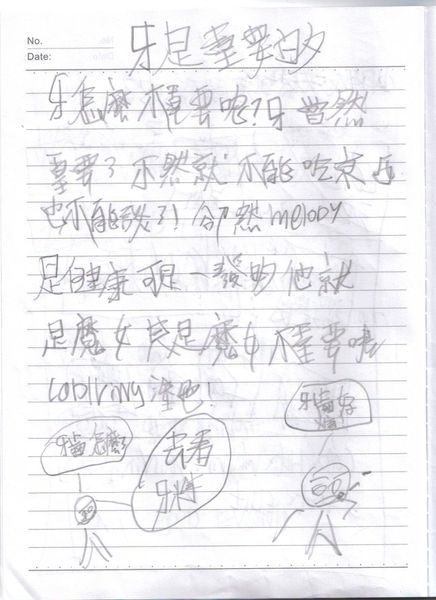 No.
Date:
牙是重要的
牙怎麼不重要呢?牙當然
重要了不然就不能吃東西
也不能說了!卻然melody
是健康可是一發的他就
是魔女但是魔女不重要
牙齒怎麼
去看
牙
牙齒好